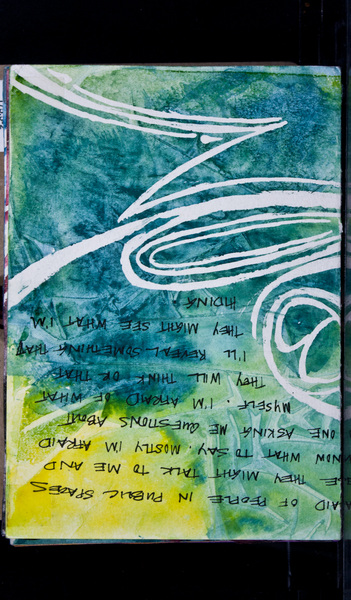 AID OF PEOPLE IN PUBLIC SPACES
SE THEY MIGHT TALK TO ME AND
KNOW WHAT TO SAY. MOSTLY I'M AFRAID
ONE ASKING ME QUESTIONS ABOUT
MYSELF. I'M AFRAID OF WHAT
THEY WILL THINK OR THAT
I'LL REVEAL SOMETHING THAT
THEY MIGHT SEE WHAT I'M
HIDING.